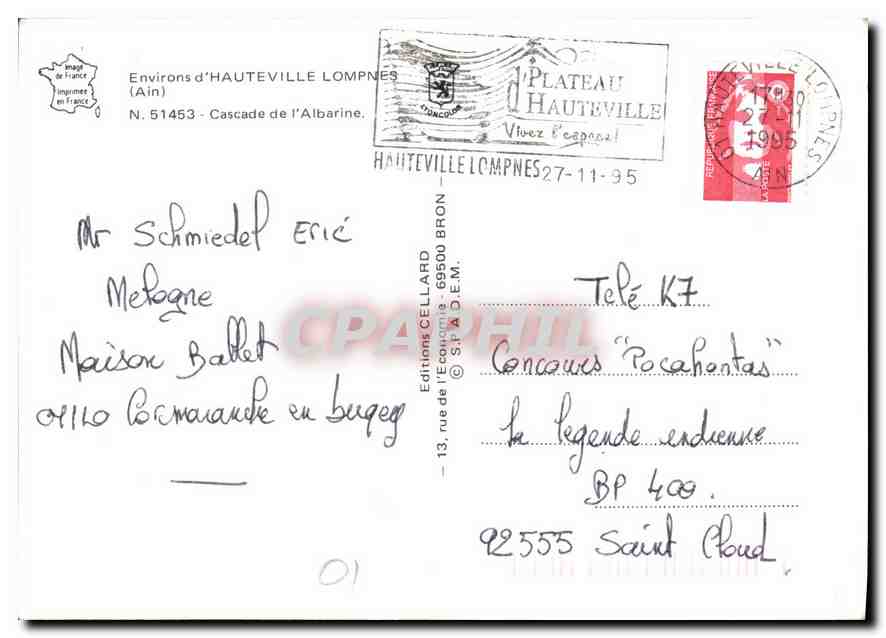 Image
de France
Imprimée
en France
Environs d'HAUTEVILLE LOMPNES
(Ain)
N. 51453 - Cascade de l'Albarine.
d'PLATEAU
d'HAUTEVILLE
Vivez l'espace!
HAUTEVILLE LOMPNES 27-11-95
01 HAUTEVILLE-LOMPNES
27-11
1995
AIN
RÉPUBLIQUE FRANÇAISE
LA POSTE
Mr Schmiedel Eric
Metogne
Maison Ballet
01110 Cormaranche en bugey
Editions CELLARD
13, rue de l'Economie - 69500 BRON
© S.P.A.D.E.M.
Télé K7
Concours "Pocahontas"
la legende endienne
BP 400.
92555 Saint Cloud
01
CPAPHIL